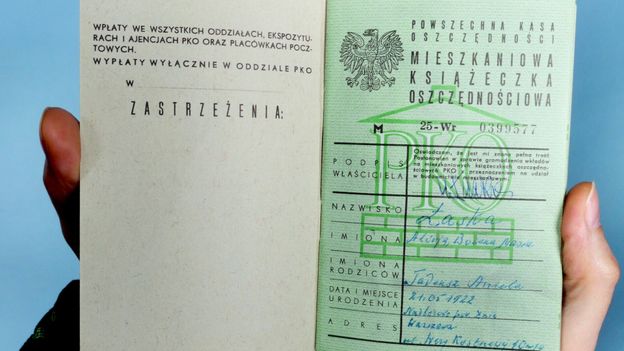 WPŁATY WE WSZYSTKICH ODDZIAŁACH, EKSPOZYTU-
RACH I AJENCJACH PKO ORAZ PLACÓWKACH POCZ-
TOWYCH.
WYPŁATY WYŁĄCZNIE W ODDZIALE PKO
W
ZASTRZEŻENIA:
POWSZECHNA KASA
OSZCZĘDNOŚCI
MIESZKANIOWA
KSIĄŻECZKA
OSZCZĘDNOŚCIOWA
M 25-Wr 0399577
PKO
Oświadczam, że jest mi znana pełna treść
Postanowień w sprawie gromadzenia wkładów
na mieszkaniowych książeczkach oszczędno-
ściowych PKO z przeznaczeniem na udział
w budownictwie mieszkaniowym.
PODPIS
WŁAŚCICIELA
NAZWISKO Łaska
IMIONA Alicja, Bożena
IMIONA
RODZICÓW Tadeusz Aniela
DATA I MIEJSCE
URODZENIA 21.05.1922
ADRES Warszawa
ul.